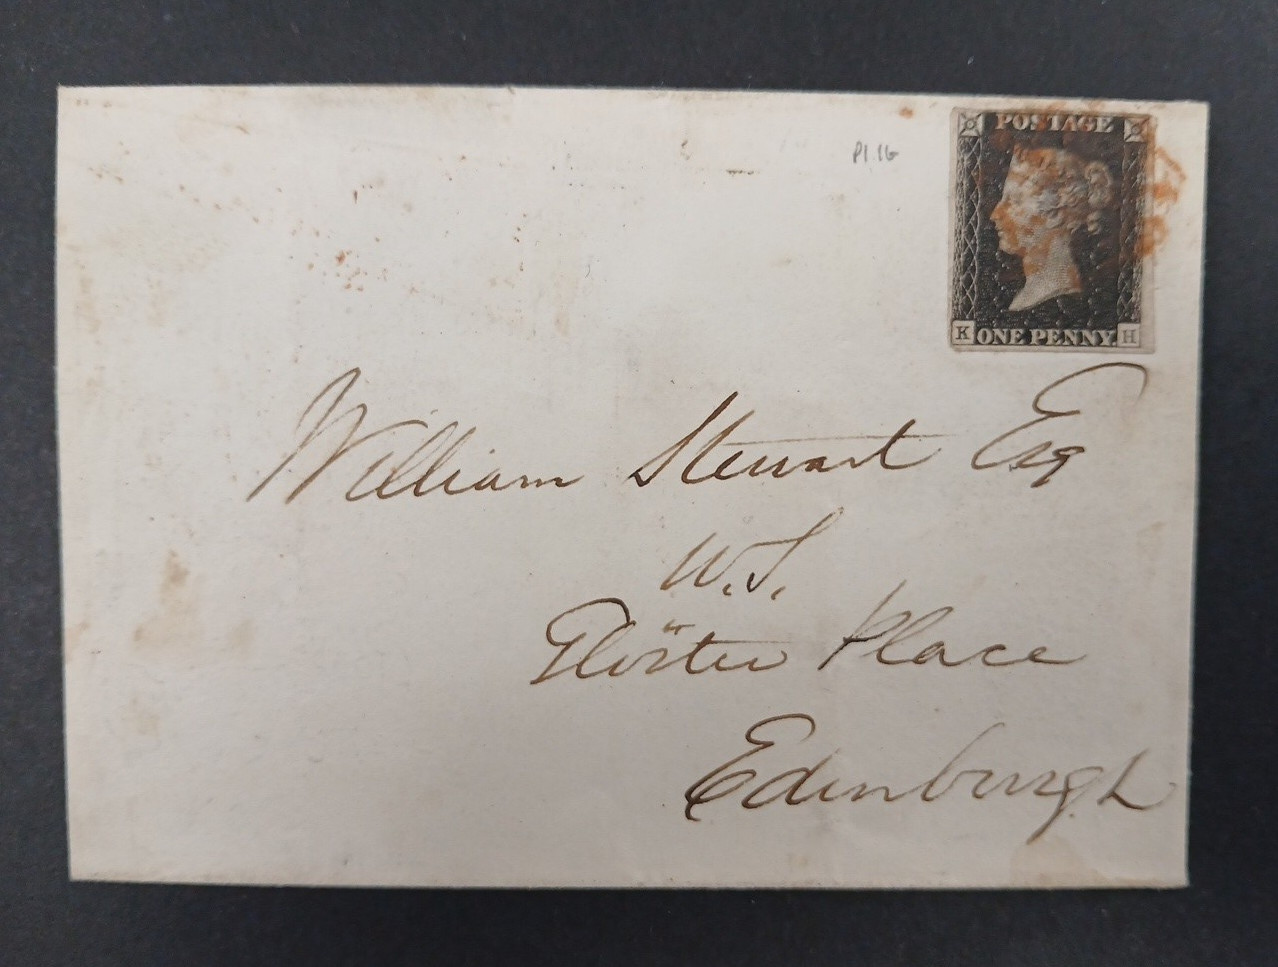 Pl. 1b
POSTAGE
K ONE PENNY. H
William Stewart Esq
W.S.
Glöster Place
Edinburgh